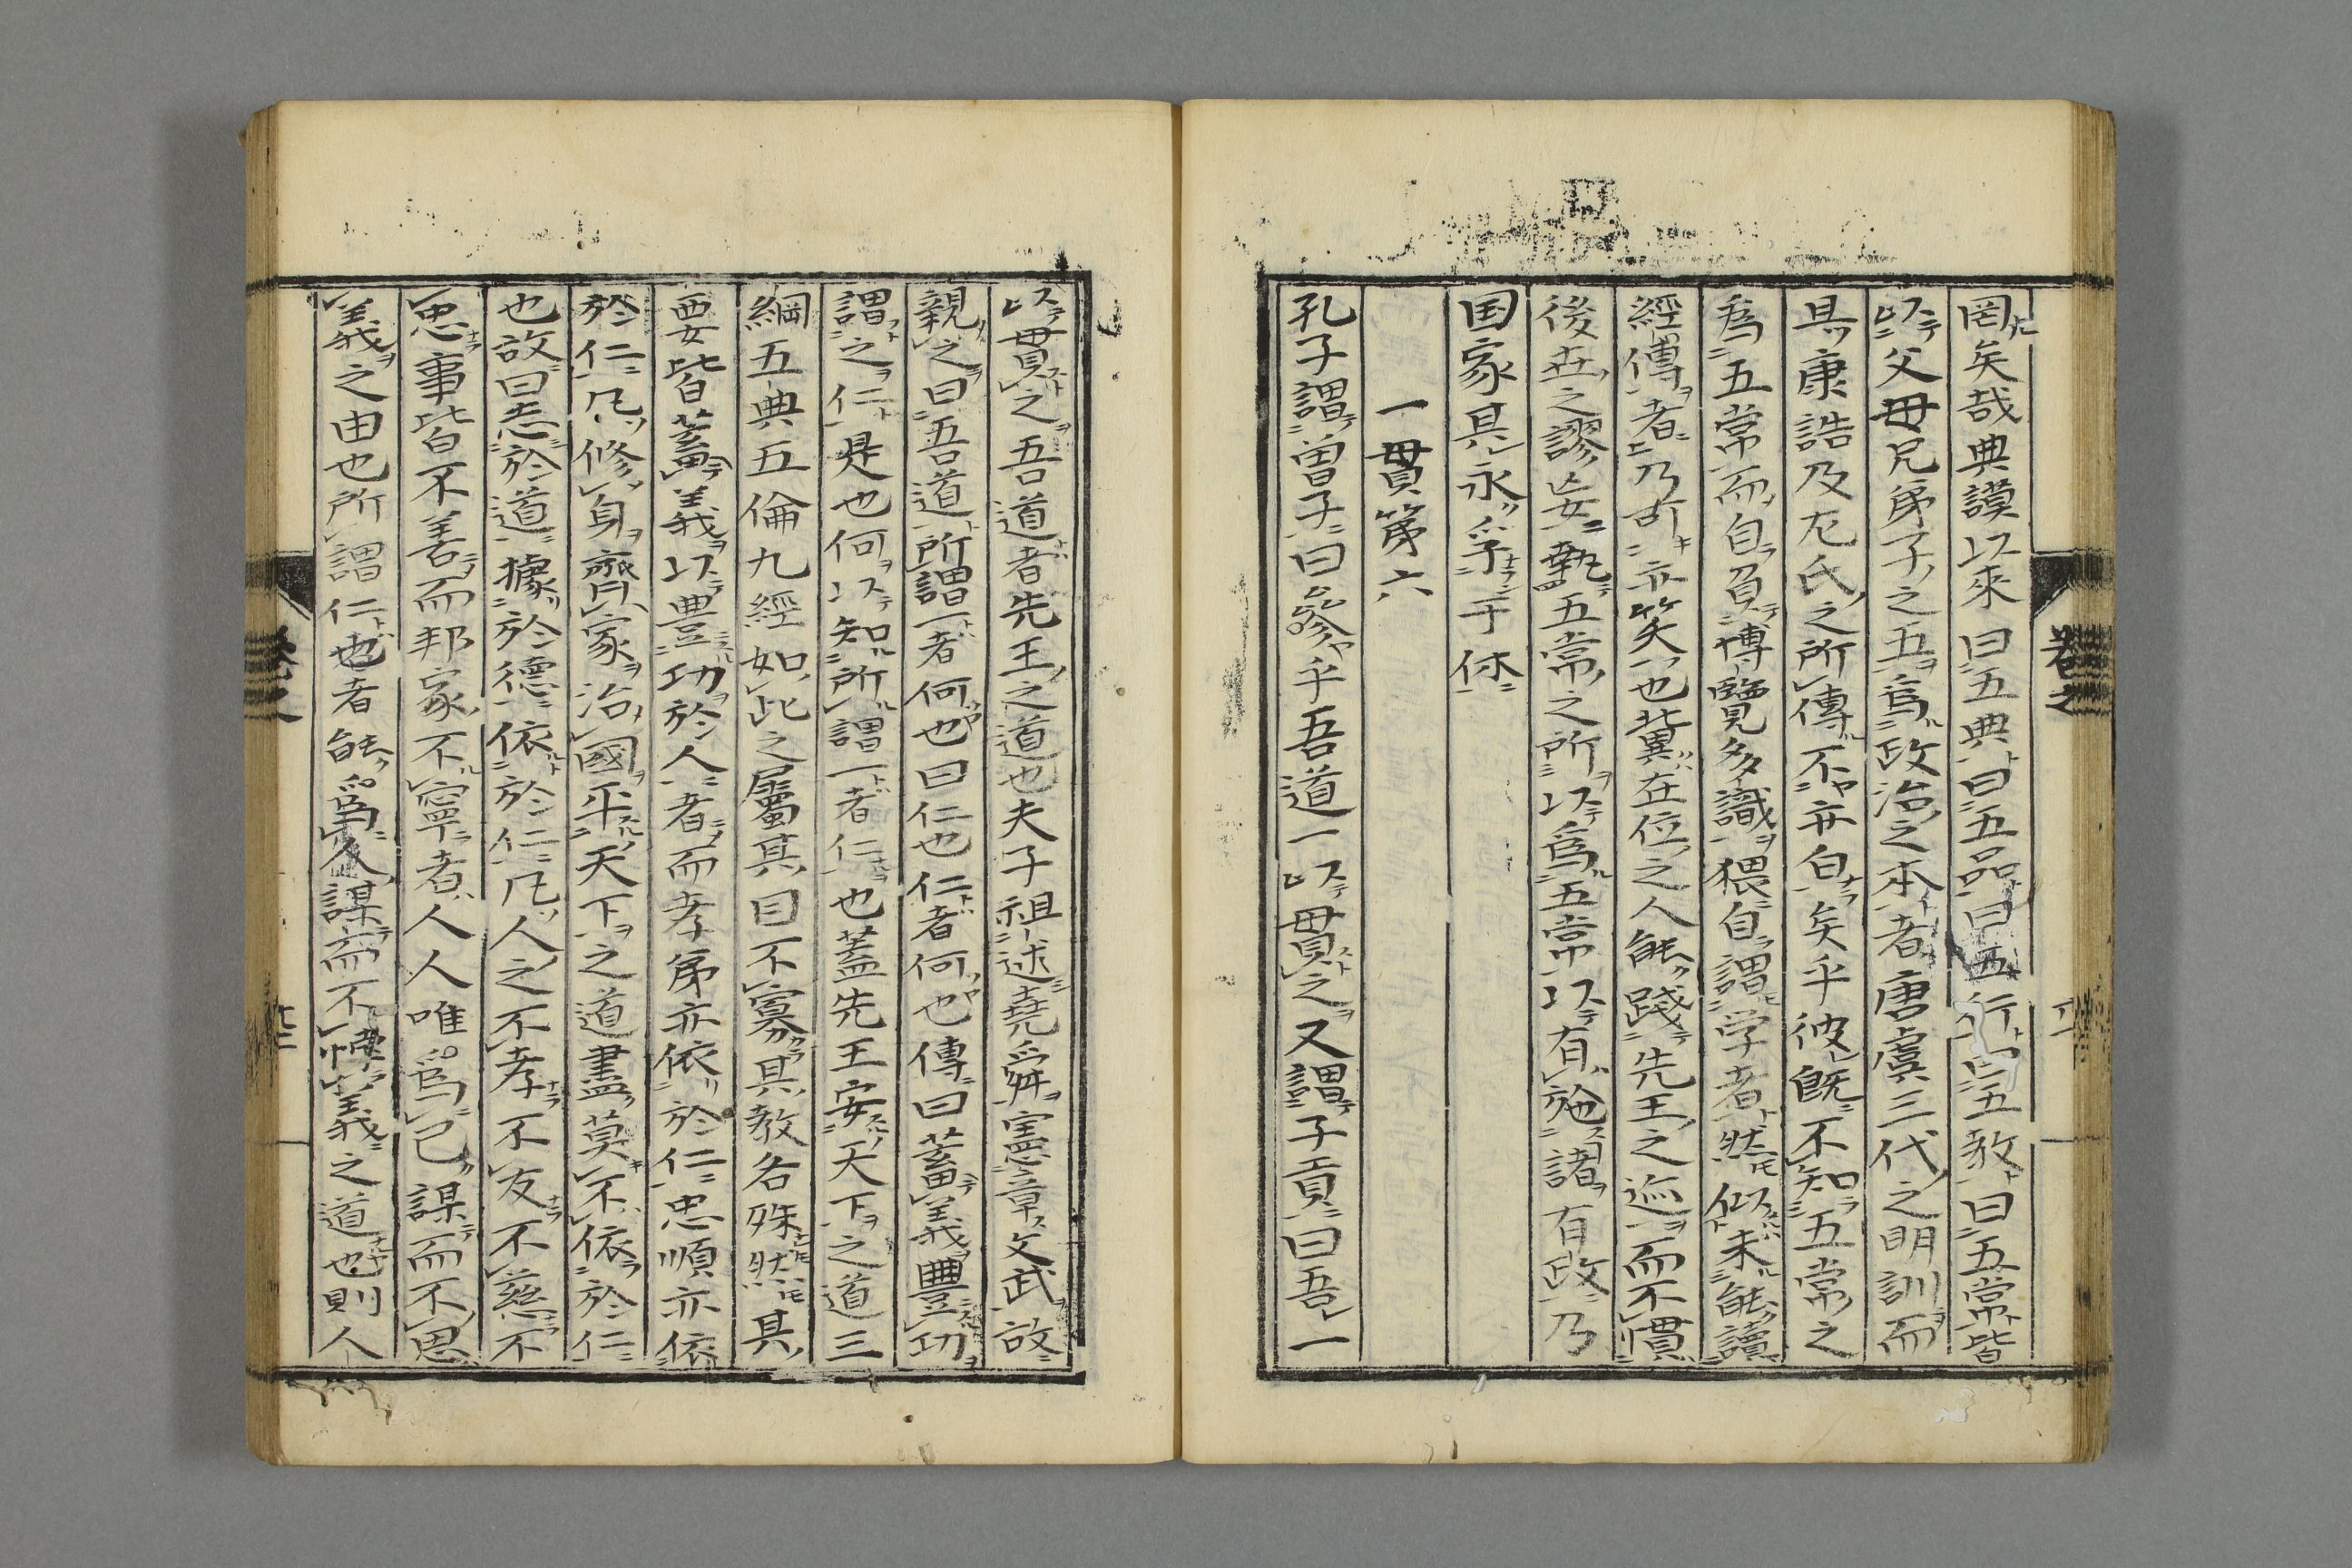 罔矣哉典謨以來曰五典曰五品曰五行曰五教曰五常皆
以父母兄弟子之五爲政治之本者唐虞三代之明訓而
具康誥及左氏之所傳不亦白矣乎彼既不知五常之
爲五常而自負博覽多識猥自謂学者然似未能讀
經傳者乃可亦笑也冀在位之人能踐先王之迹而不慣
後世之謬妄執五常之所以爲五常以有施諸有政乃
国家其永孚于休
一貫第六
孔子謂曽子曰參乎吾道一以貫之又謂子貢曰吾一
以貫之吾道者先王之道也夫子祖述堯舜憲章文武故
親之曰吾道所謂一者何也曰仁也仁者何也傳曰蓄義豐功
謂之仁是也何以知所謂一者仁也蓋先王安天下之道三
綱五典五倫九經如此之屬其目不寡其教各殊然其
要皆蓄義以豊功於人者而孝弟亦依於仁忠順亦依
於仁凡修身齊家治國平天下之道盡莫不依於仁
也故曰志於道據於德依於仁凡人之不孝不友不慈不
忠事皆不善而邦家不寧者人人唯爲己謀而不思
義之由也所謂仁也者能爲人謀而不悖義之道也則人
卷之
卷之